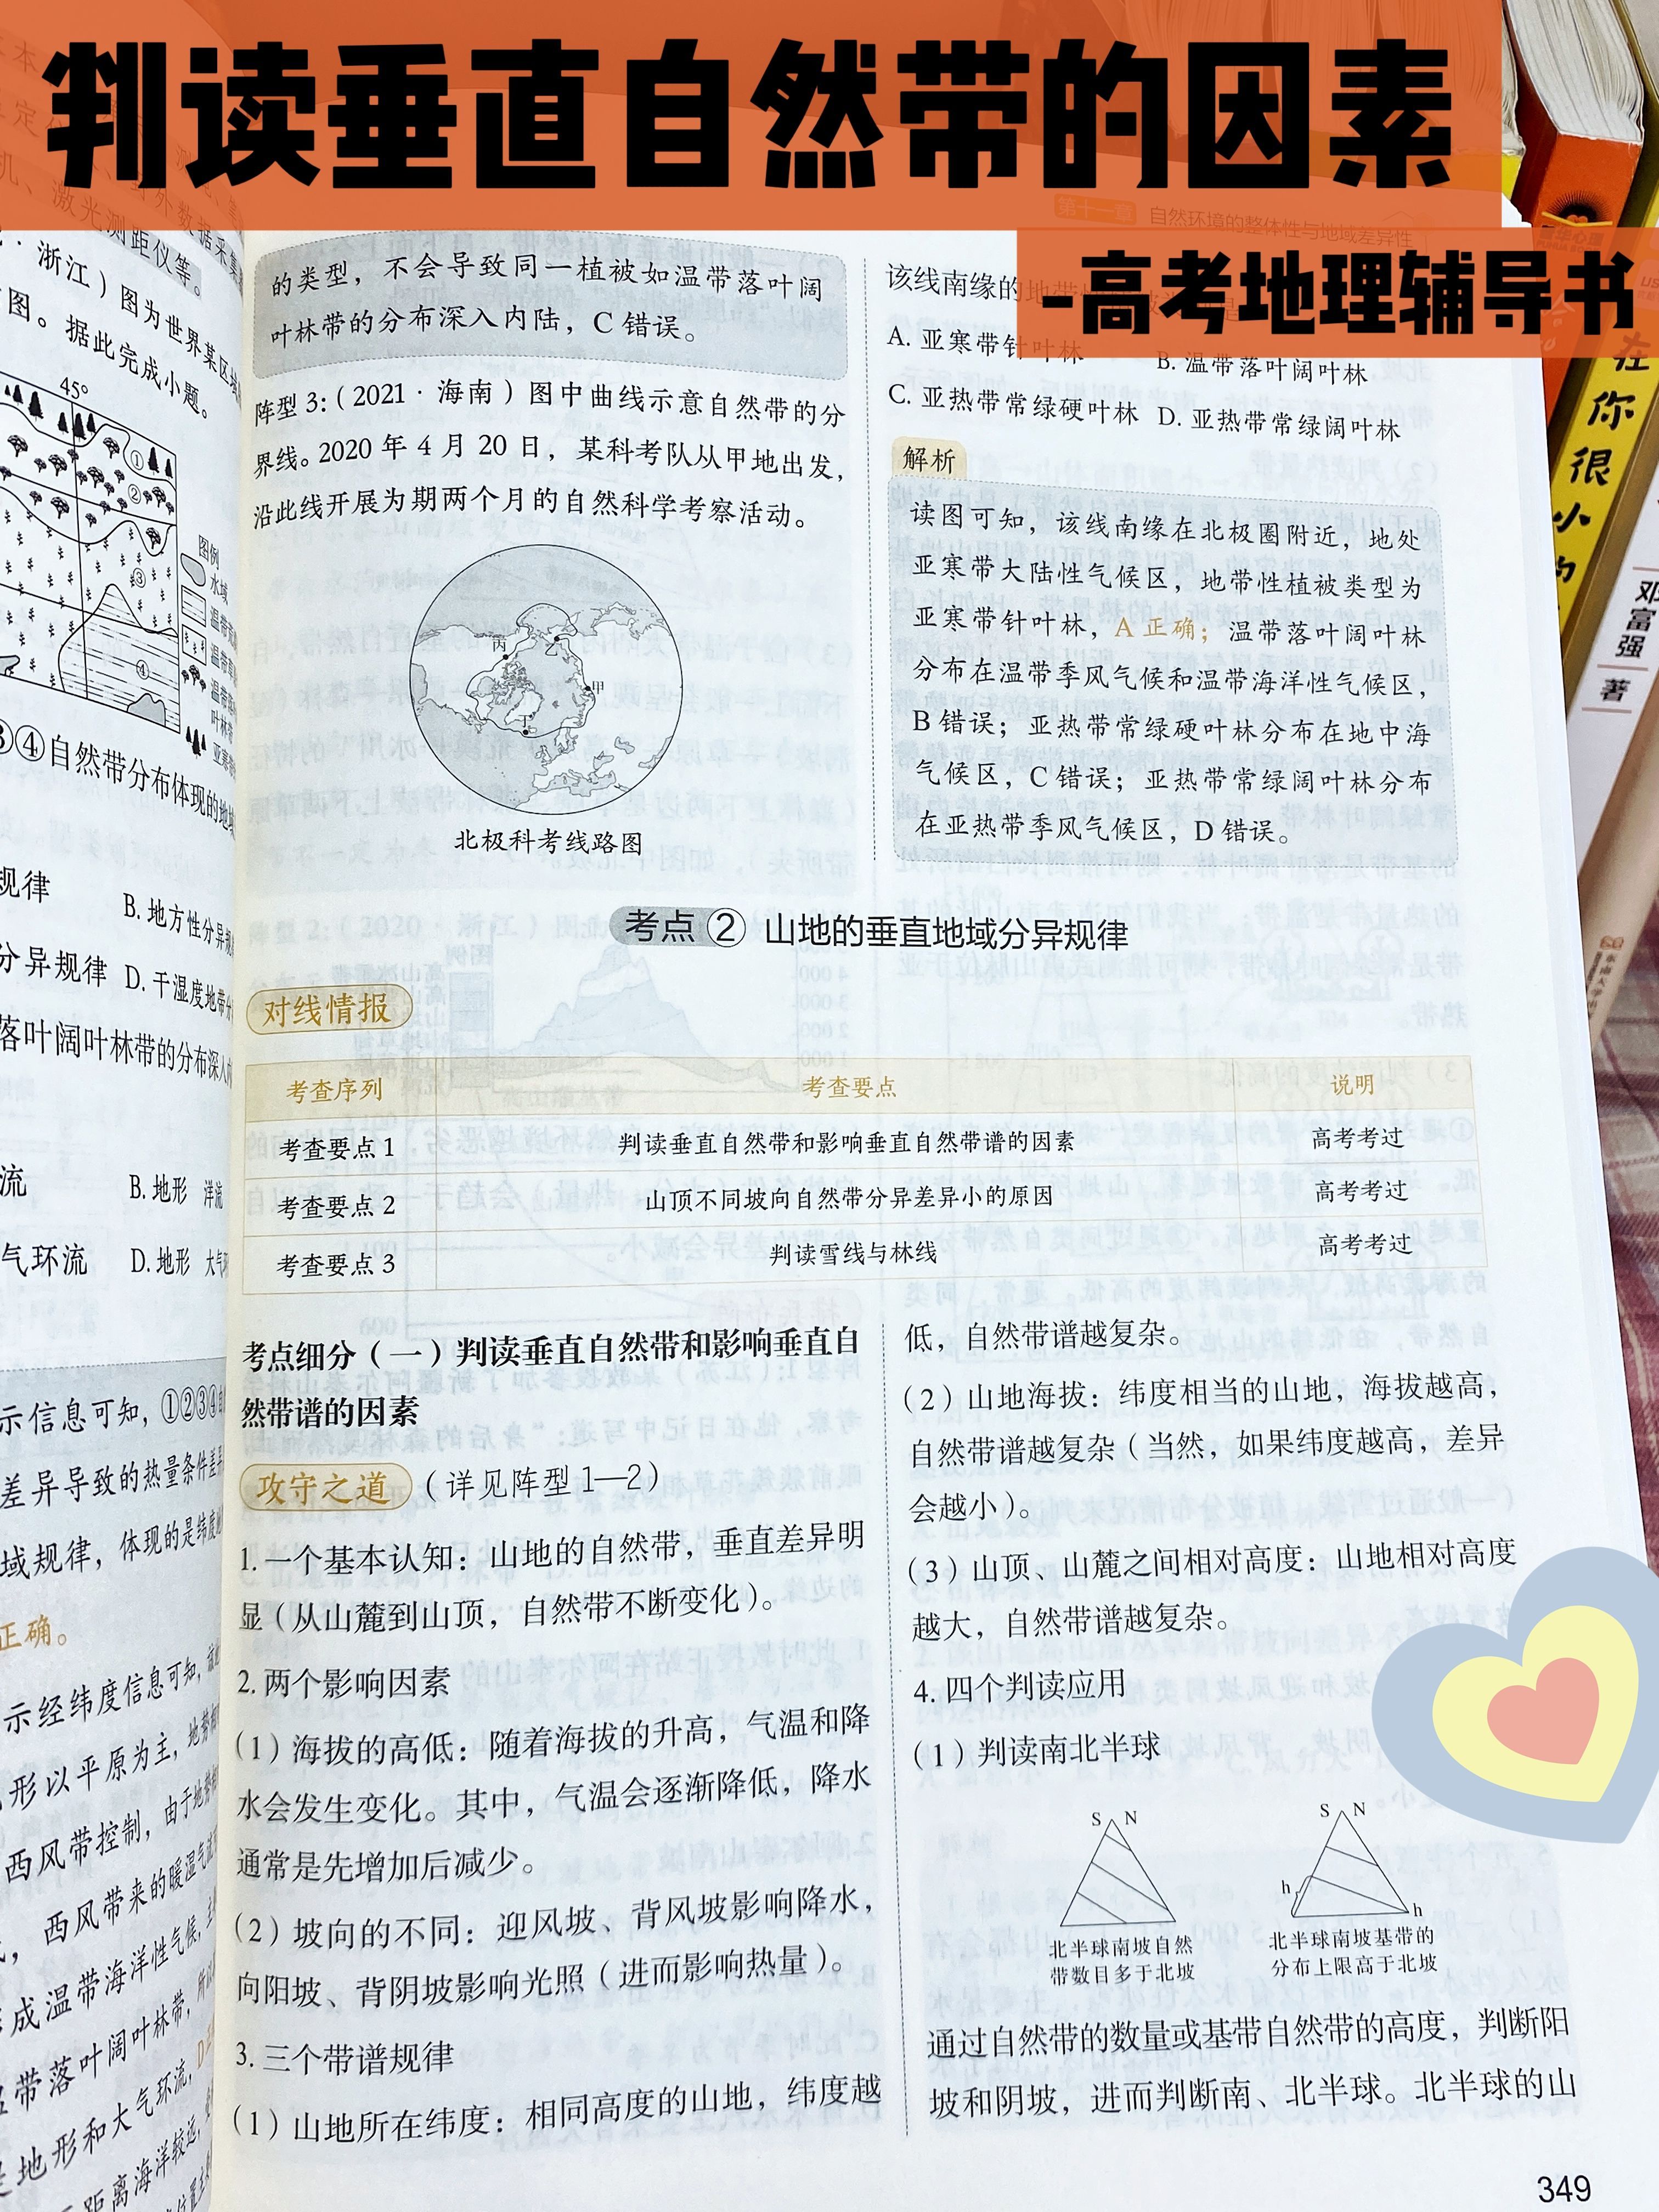 判读垂直自然带的因素
-高考地理辅导书
第十一章 自然环境的整体性与地域差异性
机、激光测距仪等。
浙江）图为世界某区域
图。据此完成小题。
45°
①
②
③
④
图例
水域
③④自然带分布体现的地域
规律
B. 地方性分异规
分异规律 D. 干湿度地带分
落叶阔叶林带的分布深入
流
B. 地形 洋流
气环流 D. 地形 大气
示信息可知，①②③④
差异导致的热量条件差
域规律，体现的是纬度
正确。
示经纬度信息可知，
形以平原为主，地势
西风带控制，由于地势
西风带来的暖湿气流
形成温带海洋性气候，
温带落叶阔叶林带，所
是地形和大气环流，D
距离海洋较远，
的类型，不会导致同一植被如温带落叶阔
叶林带的分布深入内陆，C 错误。
阵型 3:（2021 · 海南）图中曲线示意自然带的分
界线。2020 年 4 月 20 日，某科考队从甲地出发，
沿此线开展为期两个月的自然科学考察活动。
丙
乙
甲
丁
北极科考线路图
该线南缘的地带
A. 亚寒带针叶林 B. 温带落叶阔叶林
C. 亚热带常绿硬叶林 D. 亚热带常绿阔叶林
解析
读图可知，该线南缘在北极圈附近，地处
亚寒带大陆性气候区，地带性植被类型为
亚寒带针叶林，A 正确；温带落叶阔叶林
分布在温带季风气候和温带海洋性气候区，
B 错误；亚热带常绿硬叶林分布在地中海
气候区，C 错误；亚热带常绿阔叶林分布
在亚热带季风气候区，D 错误。
考点 ② 山地的垂直地域分异规律
对线情报
考查序列 考查要点 说明
考查要点 1 判读垂直自然带和影响垂直自然带谱的因素 高考考过
考查要点 2 山顶不同坡向自然带分异差异小的原因 高考考过
考查要点 3 判读雪线与林线 高考考过
考点细分（一）判读垂直自然带和影响垂直自
然带谱的因素
攻守之道（详见阵型 1—2）
1. 一个基本认知：山地的自然带，垂直差异明
显（从山麓到山顶，自然带不断变化）。
2. 两个影响因素
（1）海拔的高低：随着海拔的升高，气温和降
水会发生变化。其中，气温会逐渐降低，降水
通常是先增加后减少。
（2）坡向的不同：迎风坡、背风坡影响降水，
向阳坡、背阴坡影响光照（进而影响热量）。
3. 三个带谱规律
（1）山地所在纬度：相同高度的山地，纬度越
低，自然带谱越复杂。
（2）山地海拔：纬度相当的山地，海拔越高，
自然带谱越复杂（当然，如果纬度越高，差异
会越小）。
（3）山顶、山麓之间相对高度：山地相对高度
越大，自然带谱越复杂。
4. 四个判读应用
（1）判读南北半球
S N
北半球南坡自然
带数目多于北坡
S N
h
h
北半球南坡基带的
分布上限高于北坡
通过自然带的数量或基带自然带的高度，判断阳
坡和阴坡，进而判断南、北半球。北半球的山
349
在你很小的
邓富强 著